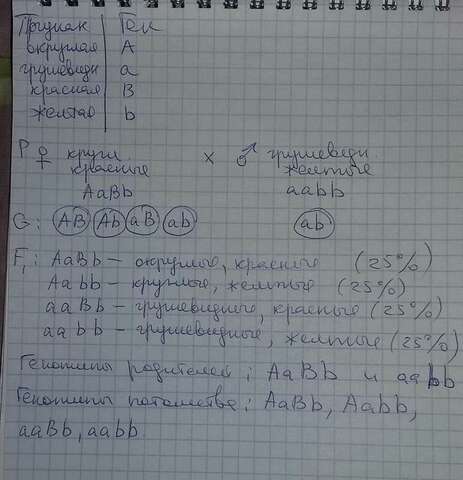 Признак Ген
округлая A
грушевидн a
красная B
желтая b
P ♀ кругл × ♂ грушевидн.
красные желтые
AaBb aabb
G: AB Ab aB ab ab
F₁: AaBb – округлые, красные (25%)
Aabb – круглые, желтые (25%)
aaBb – грушевидные, красные (25%)
aabb – грушевидные, желтые (25%)
Генотипы родителей: AaBb и aabb
Генотипы потомства: AaBb, Aabb,
aaBb, aabb.